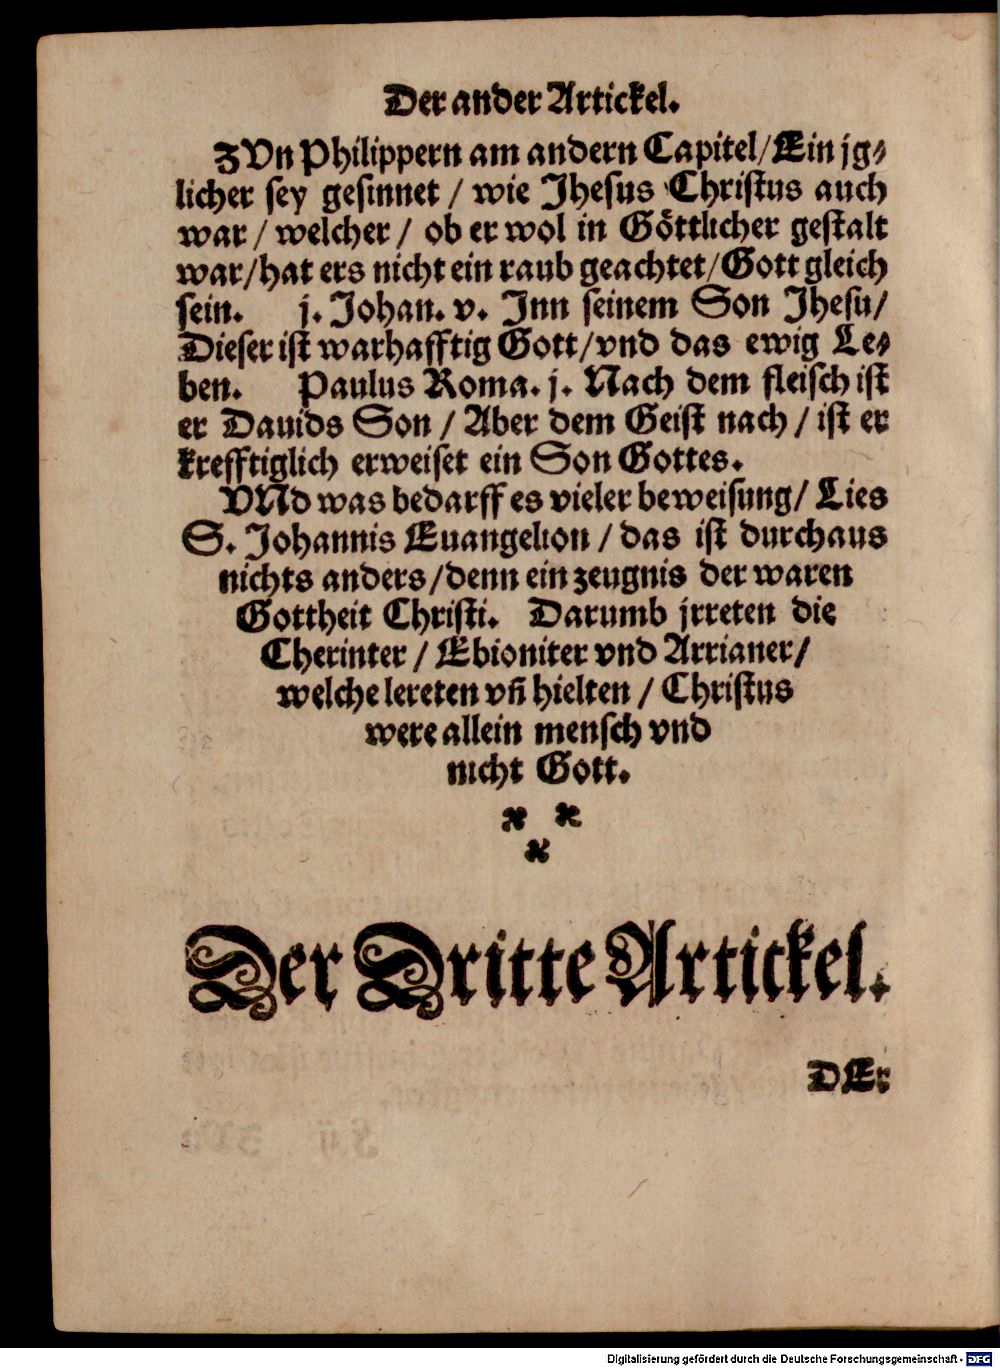 Der ander Artickel.
ZVn Philippern am andern Capitel/Ein jg⸗
licher sey gesinnet / wie Jhesus Christus auch
war / welcher / ob er wol in Göttlicher gestalt
war/hat ers nicht ein raub geachtet/Gott gleich
sein. j. Johan. v. Inn seinem Son Jhesu/
Dieser ist warhafftig Gott/vnd das ewig Le⸗
ben. Paulus Roma. j. Nach dem fleisch ist
er Dauids Son / Aber dem Geist nach / ist er
krefftiglich erweiset ein Son Gottes.
VNd was bedarff es vieler beweisung/ Lies
S. Johannis Euangelion / das ist durchaus
nichts anders/denn ein zeugnis der waren
Gottheit Christi. Darumb jrreten die
Cherinter / Ebioniter vnd Arrianer/
welche lereten vñ hielten / Christus
were allein mensch vnd
nicht Gott.
Der Dritte Artickel.
DEr
Digitalisierung gefördert durch die Deutsche Forschungsgemeinschaft - DFG